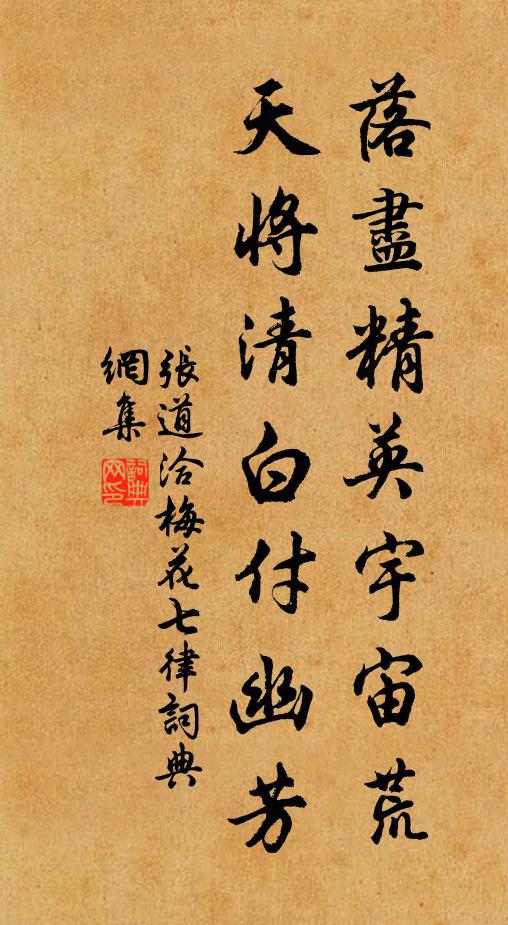 落盡精英宇宙荒
天將清白付幽芳
張道洽梅花七律詞典
網集
詞典網印